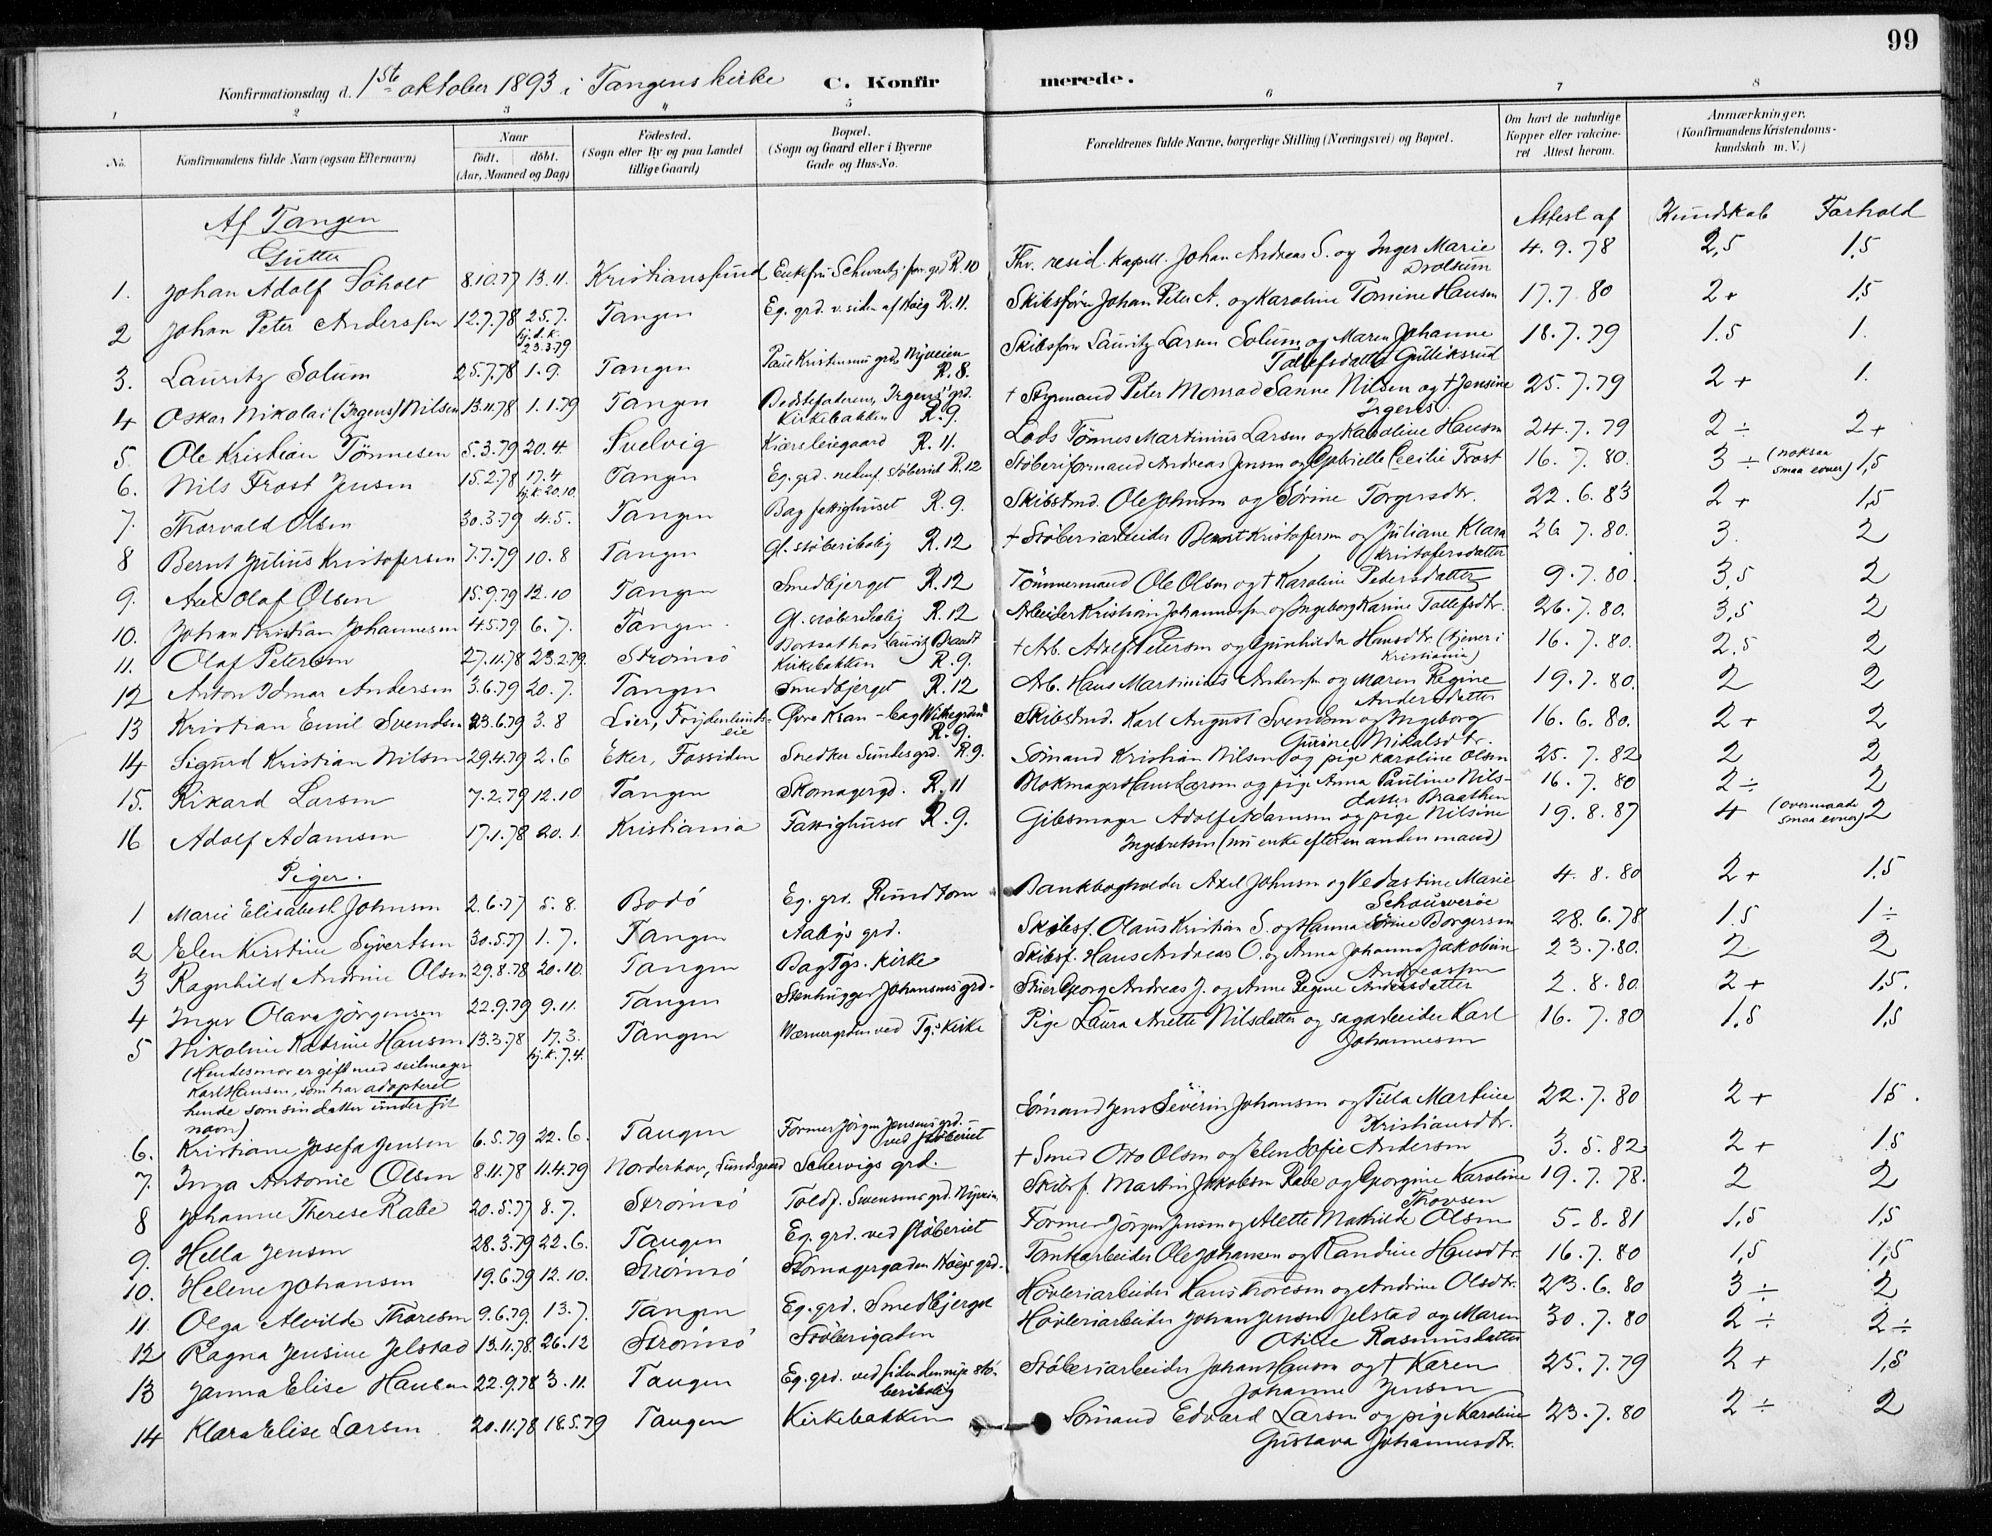 99
Konfirmationsdag d. 1ste oktober 1893 i Tangens kirke C. Konfirmerede.
1 2 3 4 5 6 7 8
No. Konfirmandens fulde Navn (ogsaa Efternavn) Naar født. døbt. (Aar, Maaned og Dag) Födested. (Sogn eller By og paa Landet tillige Gaard) Bopæl. (Sogn og Gaard eller i Byerne Gade og Hus-No. Forældrenes fulde Navne, borgerlige Stilling (Næringsvei) og Bopæl. Om havt de naturlige Kopper eller vakcineret Attest herom. Anmærkninger. (Konfirmandens Kristendomskundskab m. V.)
Af Tangen Attest af Kundskab Forhold
Gutter
1. Johan Adolf Söholt 8.10.77 13.11. Kristianssund Enkefru Schwartz' grd R.10 Thv. resid. kapell. Johan Andreas S. og Inger Marie Drolsum 4.9.78 2,5 1,5
2 Johan Peter Anderssen 12.7.78 25.7. hj.d.k. 23.3.79 Tangen Eg. grd. v. siden af Höeg R.11. Skibsförer Johan Peter A. og Karoline Tomine Hansen 17.7.80 2+ 1,5
3. Lauritz Solum 25.7.78 1.9. Tangen Paul Kristensens grd, Nyveien R.8. Skibsförer Lauritz Larsen Solum og Maren Johanne Tollefsdatter Gulliksrud 18.7.79 1.5 1.
4 Oskar Nikolai (Irgens) Nilsen 13.11.78 1.1.79 Tangen Bedstefaderens, Irgens' grd. Kirkebakken R.9. † Styrmand Peter Monrad Sanne Nilsen og † Jensine Irgens. 25.7.79 2+ 1.
5. Ole Kristian Tönnesen 5.3.79 20.4. Svelvig Kiærsleiegaard R.11. Lods Tönnes Martinius Larsen og Karoline Hansen 24.7.79 2÷ 2+
6. Nils Frost Jensen 15.2.78 17.4. hj.k. 20.10. Tangen Eg. grd. nedenf. stöberiet R.12 Stöberiformand Andreas Jensen og Gabrielle Cecilie Frost 16.7.80. 3÷ (noksaa smaa evner) 1,5
7. Thorvald Olsen 30.3.79 4.5. Tangen Bag fattighuset R.9. Skibstmd. Ole Johnsen og Sörine Torgersdtr. 22.6.83 2+ 1,5
8 Bernt Julius Kristofersen 7.7.79 10.8 Tangen Gl. stöberibolig R.12 † Stöberiarbeider Bernt Kristofersen og Juliane Klara Kristofersdatter 26.7.80. 3. 2
9. Axel Olaf Olsen 15.9.79 12.10 Tangen Smedbjerget R.12 Tömmermand Ole Olsen og † Karoline Pedersdatter 9.7.80. 3,5 2
10. Johan Kristian Johannesen 4.5.79 6.7. Tangen. Gl. stöberibolig R.12 Arbeider Kristian Johannesen og Ingeborg Karine Tollefsdtr. 26.7.80. 3,5 2
11. Olaf Petersen 27.11.78 23.2.79. Strömsö Bortsat hos Laurits Brandt Kirkebakken R.9. † Arb. Adolf Petersen og Gunhilda Hansdtr. (tjener i Kristiania) 16.7.80. 2,5 2
12 Anton Idmar Andersen 3.6.79 20.7. Tangen Smedbjerget R.12 Arb. Hans Martinius Andersen og Maren Regine Andersdatter 19.7.80. 2 2
13 Kristian Emil Svendsen 23.6.79 3.8 Lier, Frydenlunds-eie Övre Kran - bag Wittegrden R.9. Skibstmd. Karl August Svendsen og Ingeborg Gurine Nikolsdtr. 16.6.80. 2+ 2
14 Sigurd Kristian Nilsen 29.4.79 2.6 Eker, Fossiden Snedker Sundes grd. R.9. Sömand Kristian Nilsen og pige Karoline Olsen 25.7.82 2 2
15. Rikard Larsen 7.2.79 12.10 Tangen Skomagergd. R.11 Blokmager Hans Larsen og pige Anna Pauline Nilsdatter Braathen 16.7.80 2÷ 2
16 Adolf Adamsen 17.1.78 20.1. Kristiania Fattighuset R.9. Gibsmager Adolf Adamsen og pige Nilsine Ingebretsen (nu enke efter en anden mand) 19.8.87 4 (overmaade smaa evner) 2
Piger.
1 Marie Elisabeth Johnsen 2.6.77 5.8. Bodö Eg. grd. Rundtom Bankbogholder Axel Johnsen og Vedastine Marie Schouweröe 4.8.80 2+ 1.5
2 Elen Kristine Syvertsen 30.5.77 1.7. Tangen Aabys grd. Skibsf. Olaus Kristian S. og Hanna Sörine Borgersen 28.6.78 1.5 1÷
3 Ragnhild Andrine Olsen 29.8.78 20.10. Tangen Bag Tgs. Kirke Skibsf. Hans Andreas O. og Anna Johanna Jakobine Andreassen 23.7.80. 2 2
4 Inger Olava Jörgensen 22.9.79 9.11. Tangen Stenhugger Johansens grd. Skier Georg Andreas J. og Anne Regine Andersdatter 2.8.80. 2+ 1,5.
5 Nikoline Katrine Hansen 13.3.78 17.3. hj.k. 7.4. Tangen Wærnergrden ved Tg.s Kirke Pige Laura Anette Nilsdatter og sagarbeider Karl Johannesen 16.7.80 1,5 1,5
(Hendes mor er gift med seilmager
Karl Hansen, som har adopteret
hende som sin datter under sit
navn)
6. Kristiane Josefa Jensen 6.5.79 22.6. Tangen Former Jörgen Jensens grd. ved stöberiet Sömand Jens Severin Johansen og Tilla Martine Kristiansdtr. 22.7.80 2+ 15.
7. Inga Antonie Olsen 8.11.78 11.4.79 Norderhov, Lundsgaard Schervigs grd. † Smed Otto Olsen og Elen Sofie Andersen 3.5.82 2+ 1.5
8 Johanne Therese Rabe 20.5.77 8.7. Strömsö Toldj. Swensens grd. Nyveien. Skibsf. Martin Jakobsen Rabe og Georgine Karoline Thovsen 19.7.78. 2 2
9. Hella Jensen 28.3.79 22.6. Tangen Eg. grd. ved stöberiet Former Jörgen Jensen og Alette Mathilde Olsen 5.8.81 1,5 1,5
10. Helene Johansen 19.6.79 12.10. Strömsö Skomagergaden Höegs grd. Tomtarbeider Ole Johansen og Randine Hansdtr. 16.7.80 1,5 1,5
11. Olga Alvilde Thoresen 9.6.79. 13.7. Tangen Eg. grd. Smedbjerget Hövleriarbeider Hans Thoresen og Andrine Olsdtr. 23.6.80 3÷ 2
12 Ragna Jensine Jelstad 13.11.78. 26.12 Strömsö Stöberigaden Hövleriarbeider Johan Jensen Jelstad og Maren Otilie Rasmusdatter 30.7.80 2÷ 2÷
13 Janna Elise Hansen 22.9.78 3.11. Tangen Eg. grd. ved siden den nye stöberibolig Stöberiarbeider Johan Hansen og † Karen Johanne Jensen 25.7.79 2+ 1,5
14 Klara Elise Larsen 20.11.78 18.5.79 Tangen Kirkebakken Sömand Edvard Larsen og pige Karoline Gustava Johannesdtr. 23.7.80 2÷ 2